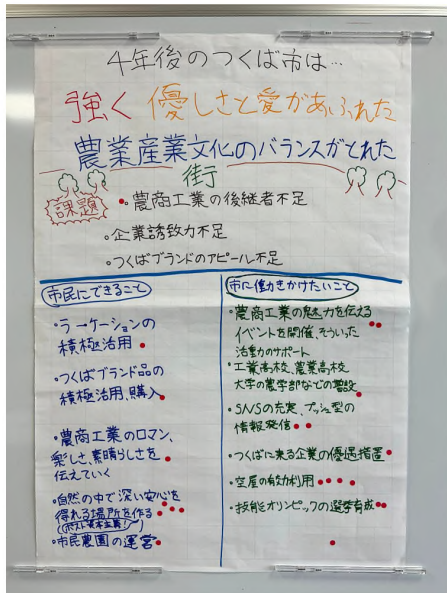 4年後のつくば市は…
強く 優しさと愛があふれた
農業産業文化のバランスがとれた
街
課題
・農商工業の後継者不足
・企業誘致力不足
・つくばブランドのアピール不足
市民にできること
・ラーケーションの
積極活用
・つくばブランド品の
積極活用、購入
・農商工業のロマン、
楽しさ、素晴らしさを
伝えていく
・自然の中で深い安心を
得れる場所を作る
(ポスト資本主義!)
・市民農園の運営
市に働きかけたいこと
・農商工業の魅力を伝える
イベントを開催、そういった
活動のサポート
・工業高校、農業高校
大学の農学部などの増設
・SNSの充実、プッシュ型の
情報発信
・つくばに来る企業の優遇措置
・空屋の有効利用
・技能オリンピックの選手育成